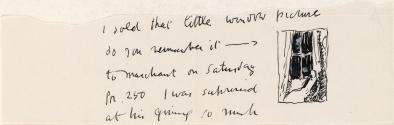 I sold that little window picture
do you remember it
to merchant on Saturday
for 250 I was surprised
at his giving so much